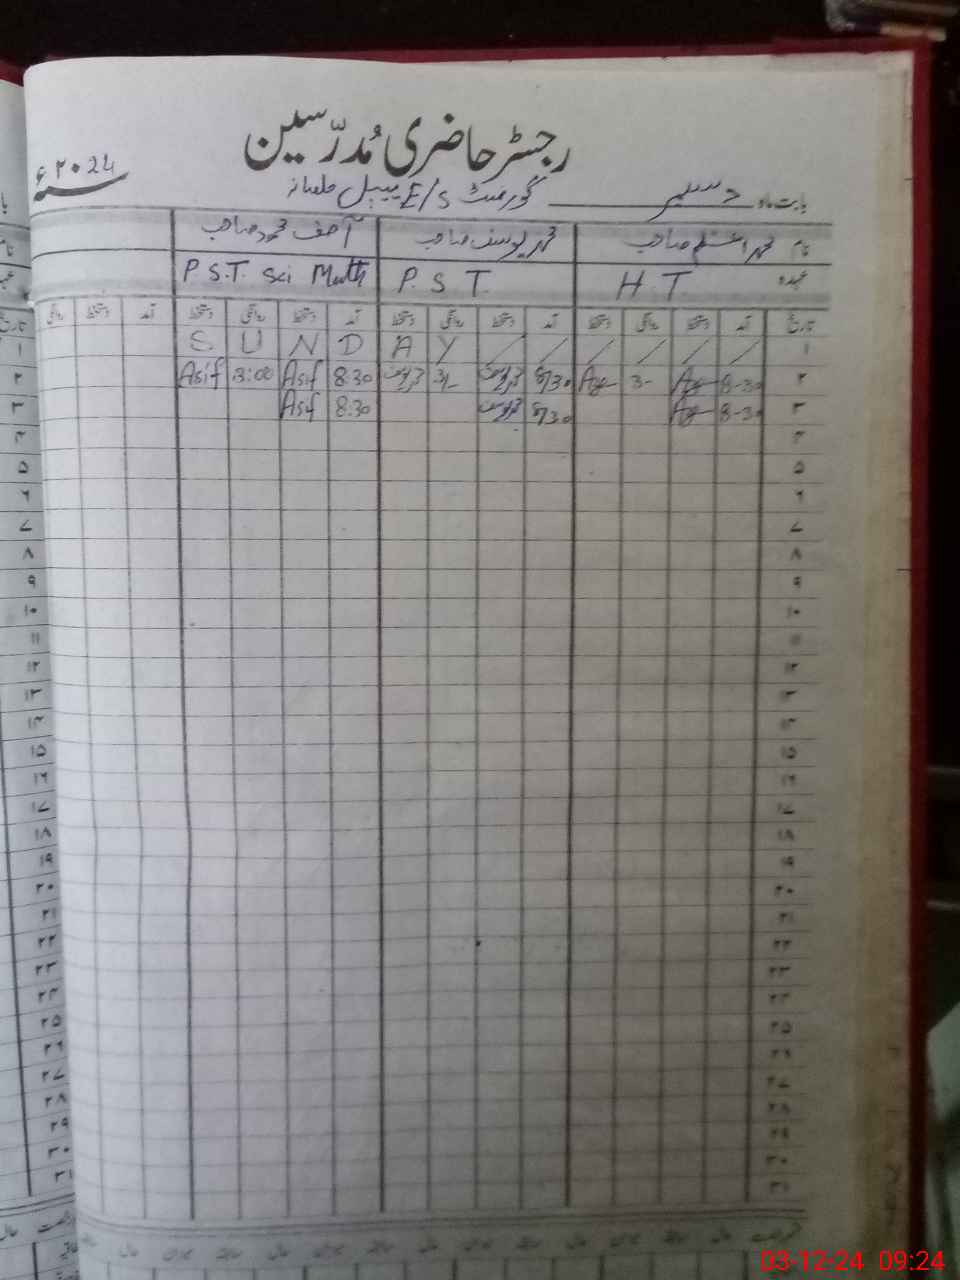 رجسٹر حاضری مُدرّسین
بابت ماہ دسمبر گورنمنٹ E/S پیپل ۲۰24ء
نام محمد اسلم صاحب محمد یوسف صاحب آصف محمود صاحب
عہدہ H T P. S T. P.S.T. Sci Math
تاریخ آمد دستخط روانگی دستخط آمد دستخط روانگی دستخط آمد دستخط روانگی دستخط آمد دستخط روانگی
۱ / / / / / / S U N D A Y
۲ 8-30 3- 8/30 محمد یوسف 3/- محمد یوسف 8:30 Asif 3:00 Asif
۳ 8-30 8/30 محمد یوسف 8:30 Asif
۴
۵
۶
۷
۸
۹
۱۰
۱۱
۱۲
۱۳
۱۴
۱۵
۱۶
۱۷
۱۸
۱۹
۲۰
۲۱
۲۲
۲۳
۲۴
۲۵
۲۶
۲۷
۲۸
۲۹
۳۰
۳۱
03-12-24 09:24